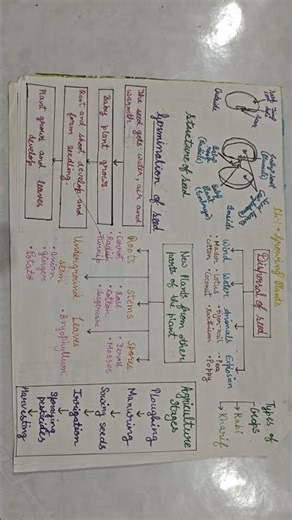 Ch:1 → Growing Plants
Seed coat
Outside
Baby plant
(Inside)
Inside
Structure of seed
Dispersal of seed
Wind Water Animals Explosion
• Madar • Lotus • Pea
• Cotton • Coconut • Xanthium • Poppy
Types of
crops
→ Rabi
→ Kharif
Germination of seed
The seed gets water air and
warmth
Baby plant grows
Root and shoot develop and
form seedling
Plant grows and leaves
develop
New Plants from other
parts of the plant
Roots Stems Spores
• Carrot • Rose • Ferns
• Radish • Cotton • Mosses
• Turnip • Sugarcane
Underground Leaves
stem • Bryophyllum
• Onion
• Ginger
• Potato
Agriculture
stages
Ploughing
Manuring
Sowing seeds
Irrigation
Spraying
pesticides
Harvesting